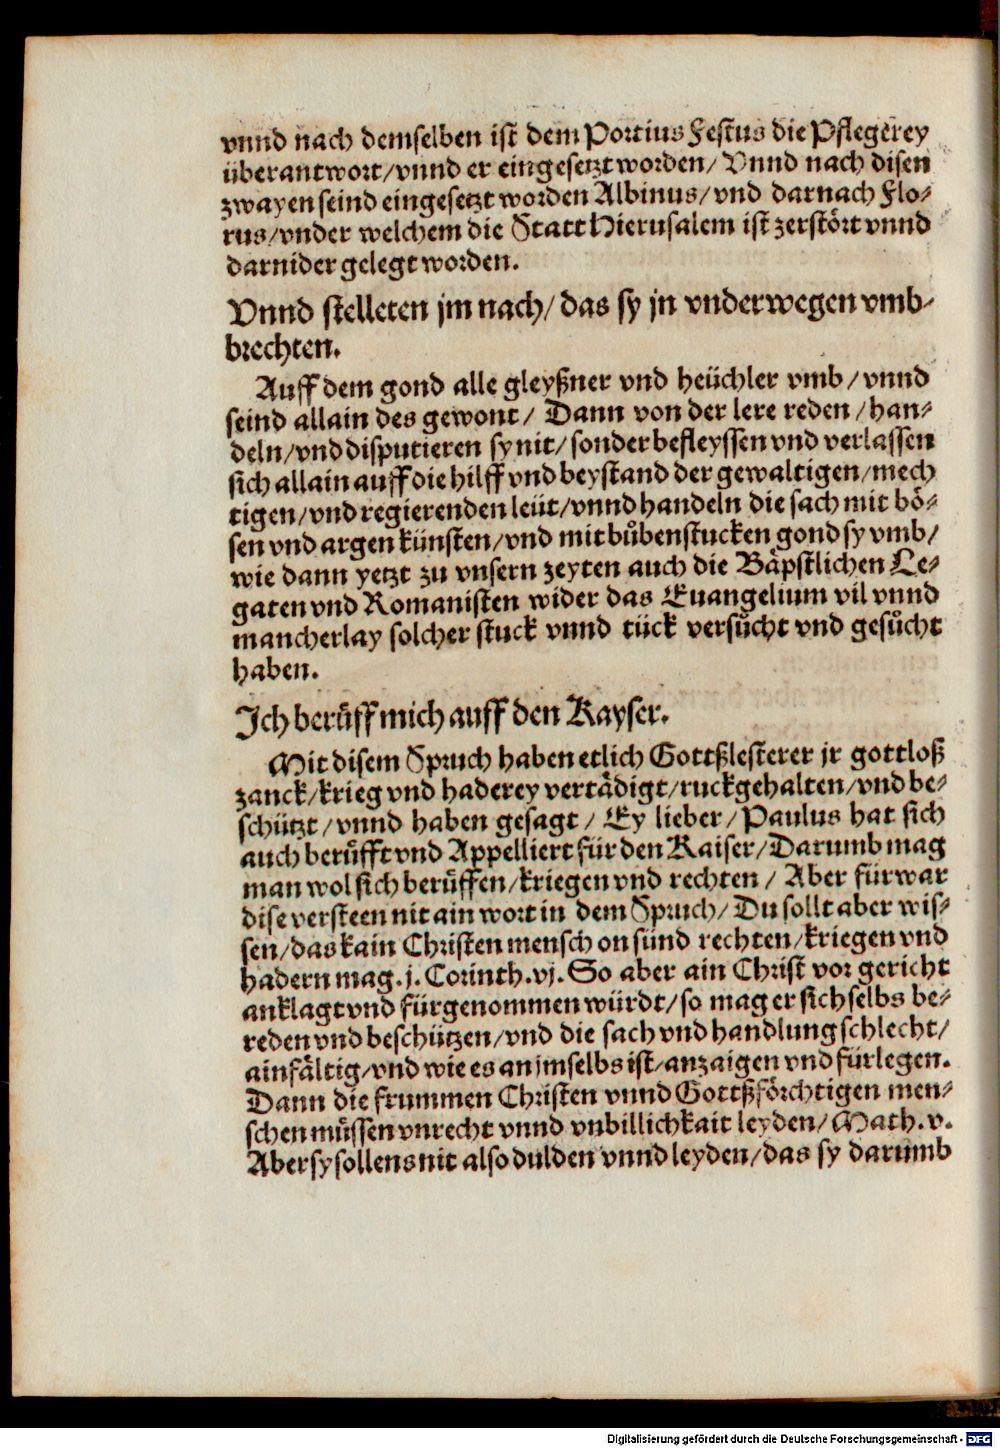 vnnd nach demselben ist dem Portius Festus die Pflegerey
überantwort/vnnd er eingesetzt worden/ Vnnd nach disen
zwayen seind eingesetzt worden Albinus/vnd darnach Flo⸗
rus/vnder welchem die Statt Hierusalem ist zerstört vnnd
darnider gelegt worden.
Vnnd stelleten jm nach/das sy jn vnderwegen vmb⸗
brechten.
Auff dem gond alle gleyßner vnd heüchler vmb/vnnd
seind allain des gewont/ Dann von der lere reden/han⸗
deln/vnd disputieren sy nit/sonder befleyssen vnd verlassen
sich allain auff die hilff vnd beystand der gewaltigen/mech
tigen/vnd regierenden leüt/vnnd handeln die sach mit bö⸗
sen vnd argen künsten/vnd mit bůbenstucken gond sy vmb/
wie dann yetzt zu vnsern zeyten auch die Bäpstlichen Le⸗
gaten vnd Romanisten wider das Euangelium vil vnnd
mancherlay solcher stuck vnnd tück versůcht vnd gesůcht
haben.
Ich berůff mich auff den Kayser.
Mit disem Spruch haben etlich Gottßlesterer jr gottloß
zanck/krieg vnd haderey vertädigt/ruckgehalten/vnd be⸗
schützt/vnnd haben gesagt/ Ey lieber/Paulus hat sich
auch berůfft vnd Appelliert für den Kaiser/Darumb mag
man wol sich berůffen/kriegen vnd rechten/ Aber fürwar
dise versteen nit ain wort in dem Spruch/Du sollt aber wis⸗
sen/das kain Christen mensch on sünd rechten/kriegen vnd
hadern mag.j.Corinth.vj.So aber ain Christ vor gericht
anklagt vnd fürgenommen würdt/so mag er sich selbs be⸗
reden vnd beschützen/vnd die sach vnd handlung schlecht/
ainfältig/vnd wie es an jmselbs ist/anzaigen vnd fürlegen.
Dann die frummen Christen vnnd Gottßförchtigen men⸗
schen müssen vnrecht vnnd vnbillichkait leyden/Math.v.
Aber sy sollens nit also dulden vnnd leyden/das sy darumb
Digitalisierung gefördert durch die Deutsche Forschungsgemeinschaft - DFG